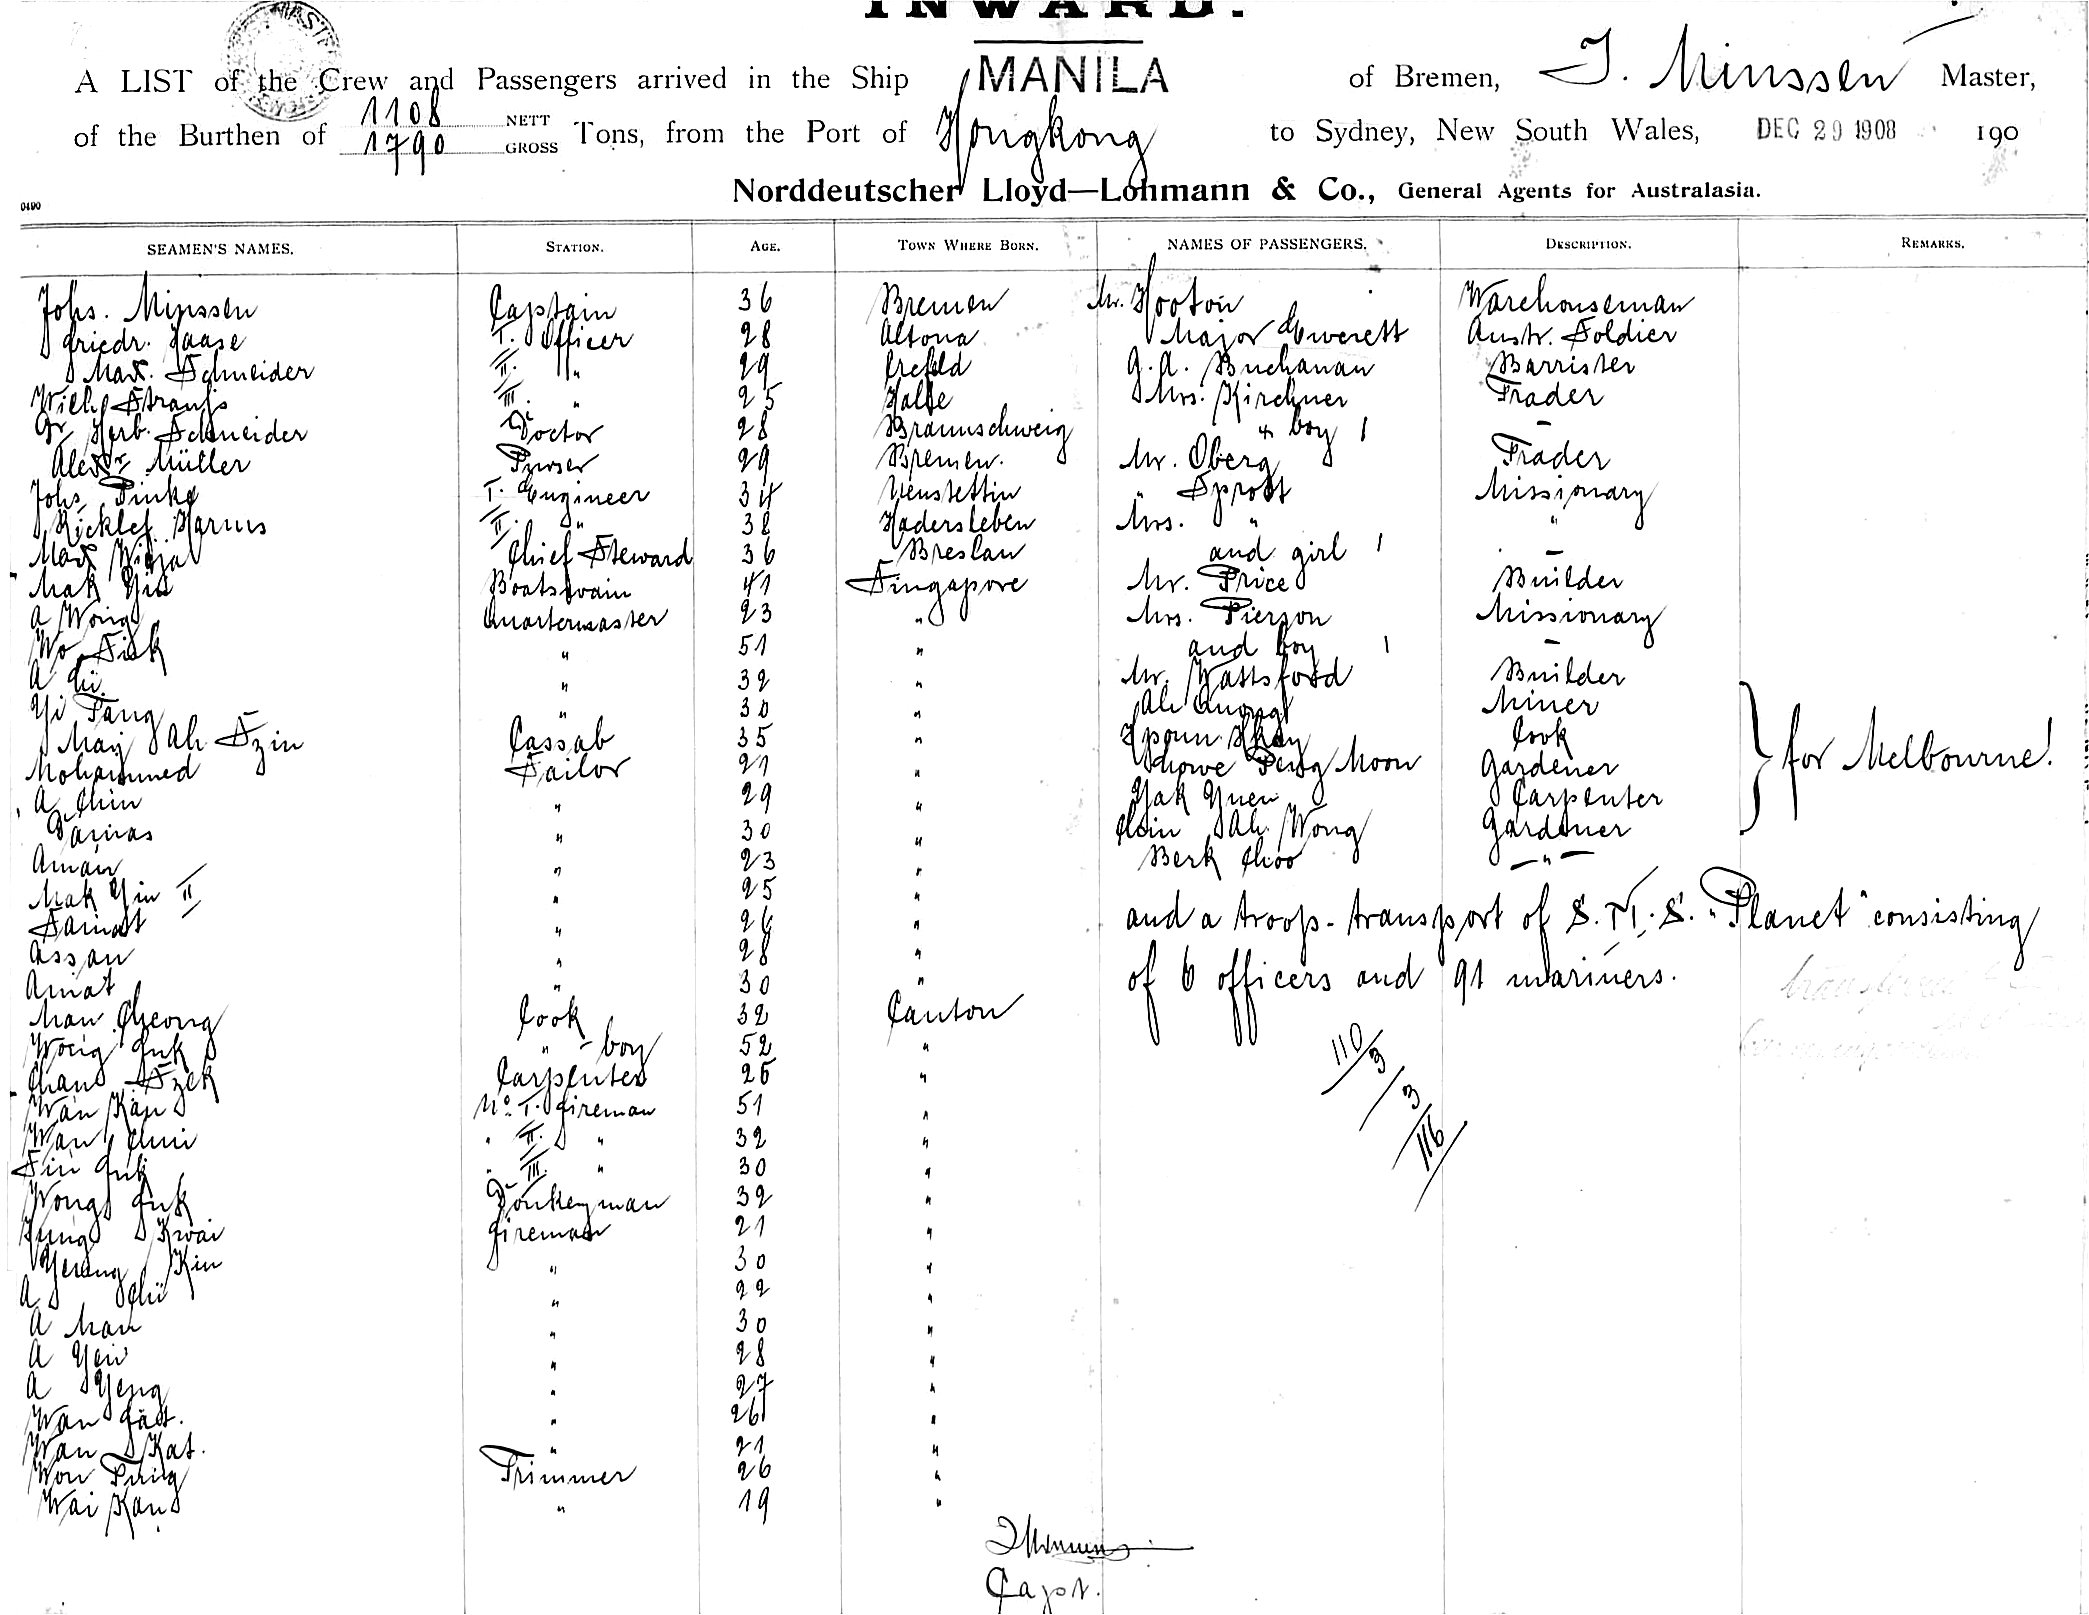 INWARD.
A LIST of the Crew and Passengers arrived in the Ship MANILA of Bremen, J. Minssen Master,
of the Burthen of 1108 NETT 1790 GROSS Tons, from the Port of Hongkong to Sydney, New South Wales, DEC 29 1908 190
Norddeutscher Lloyd—Lohmann & Co., General Agents for Australasia.
0490
SEAMEN'S NAMES. STATION. AGE. TOWN WHERE BORN. NAMES OF PASSENGERS. DESCRIPTION. REMARKS.
Johs. Minssen Captain 36 Bremen Mr. Hooton Warehouseman
Friedr. Haase I. Officer 28 Altona Major Everett Austr. Soldier
Max. Schneider II. " 29 Crefeld G. A. Buchanan Barrister
Wilh. Strauss III. " 25 Halle Mrs. Kirchner Trader
Dr Herb. Schneider Doctor 28 Braunschweig & boy 1 –
Alexdr Müller Purser 29 Bremen. Mr. Oberg Trader
Johs. I. Engineer 34 Neustettin " Sprott Missionary
Ricklef Harms II. " 38 Hadersleben Mrs. " "
Max Chief Steward 36 Breslau and girl 1 –
Mak Yin Boatswain 41 Singapore Mr. Price Builder
A Wong Quartermaster 23 " Mrs. Pierson Missionary
Wo " 51 " and boy 1 –
A " 32 " Mr. Wattsford Builder
Yi Tang " 30 " Ah Quong Miner
May Ah Szin Cassab 35 " Cook
Mohammed Sailor 21 " Peng Moon Gardener } for Melbourne!
A Chin " 29 " Yak Yuen Carpenter
" 30 " Chin Ah Wong Gardener
Aman " 23 " Berk Choo – " –
Mak Yin II " 25 "
" 26 " and a troop-transport of S. M. S. "Planet" consisting
Assan " 28 "
Amat " 30 " of 6 officers and 91 mariners.
Man Cheong Cook 32 Canton
Wong Fuk " - boy 52 "
Chan Szek Carpenter 26 "
Wan Kan No. I. Fireman 51 "
Wan Chui " II. " 32 "
Fuk " III. " 30 "
Wong Fuk Donkeyman 32 "
Kwai Fireman 21 "
Kin " 30 "
A " 22 "
A Man " 30 "
A Yew " 28 "
A Yeng " 27 "
Wan " 26 "
Wan Kat. " 21 "
Won Trimmer 26 "
Wai Kan " 19 "
110/3
/3
116
J Minssen
Capt.